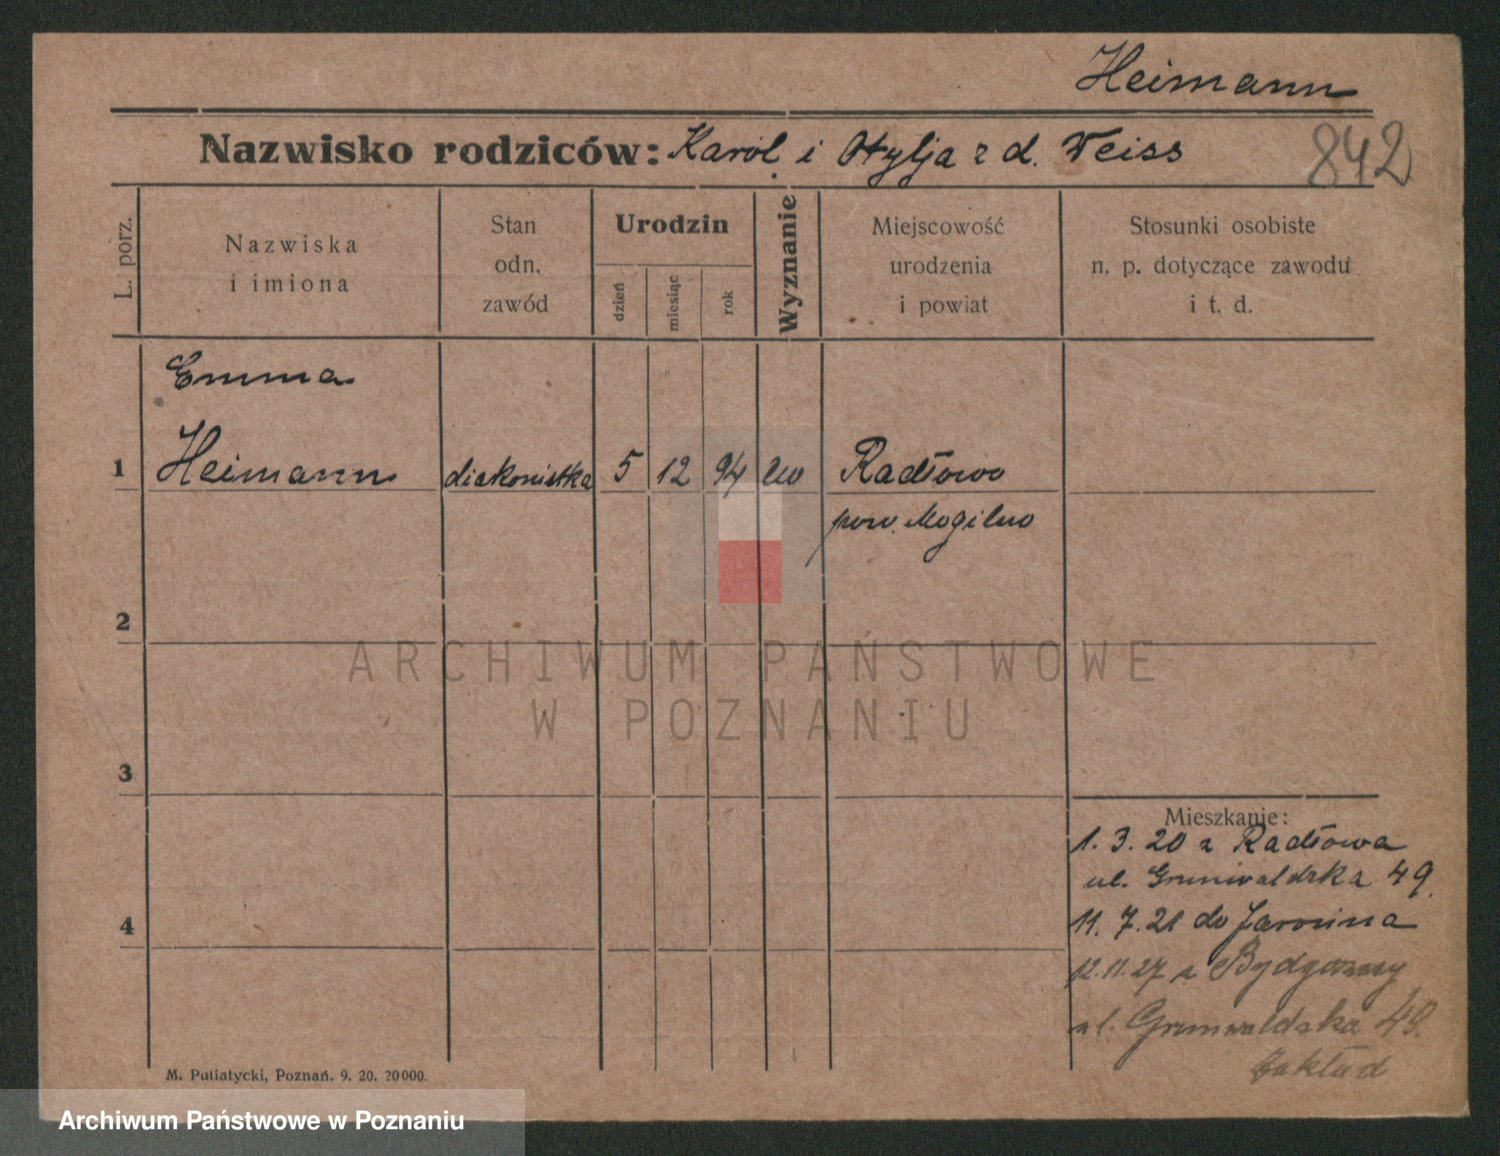 Heimann
Nazwisko rodziców: Karol i Otylja z d. Weiss
842
L. porz.
Nazwiska
i imiona
Stan
odn.
zawód
Urodzin
dzień
miesiąc
rok
Wyznanie
Miejscowość
urodzenia
i powiat
Stosunki osobiste
n. p. dotyczące zawodu
i t. d.
Emma
1 Heimann diakonistka 5 12 94 ew Radłowo
pow. Mogilno
2
ARCHIWUM PAŃSTWOWE
W POZNANIU
3
Mieszkanie:
1. 3. 20 z Radłowa
ul. Grunwaldzka 49.
4
11. 7. 21 do Jarocina
12.11.27 z Bydgoszczy
ul. Grunwaldzka 49.
Zakład
M. Putiatycki, Poznań. 9. 20. 20000.
Archiwum Państwowe w Poznaniu